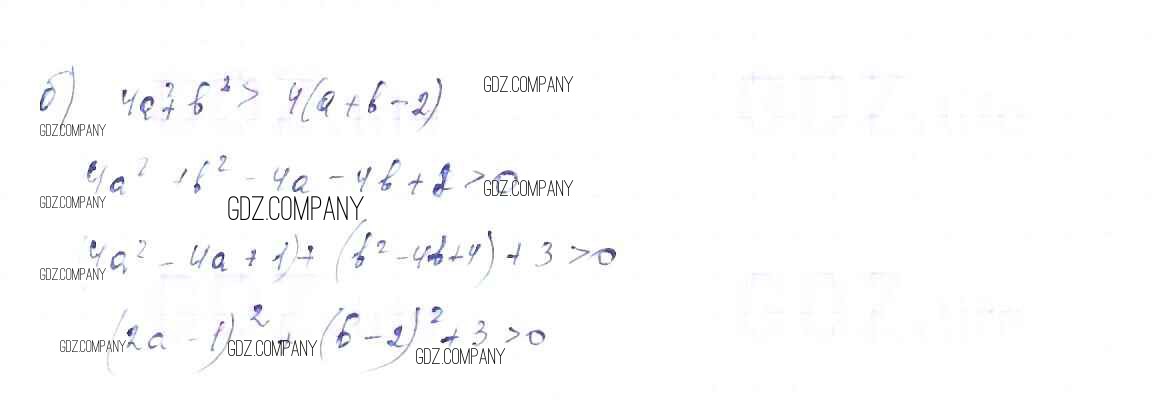 б) 4a² + b² > 4(a + b − 2) GDZ.COMPANY
GDZ.COMPANY
4a² + b² − 4a − 4b + 2 > 0 GDZ.COMPANY
GDZ.COMPANY GDZ.COMPANY
(4a² − 4a + 1) + (b² − 4b + 4) + 3 > 0
GDZ.COMPANY
(2a − 1)² + (b − 2)² + 3 > 0
GDZ.COMPANY GDZ.COMPANY GDZ.COMPANY